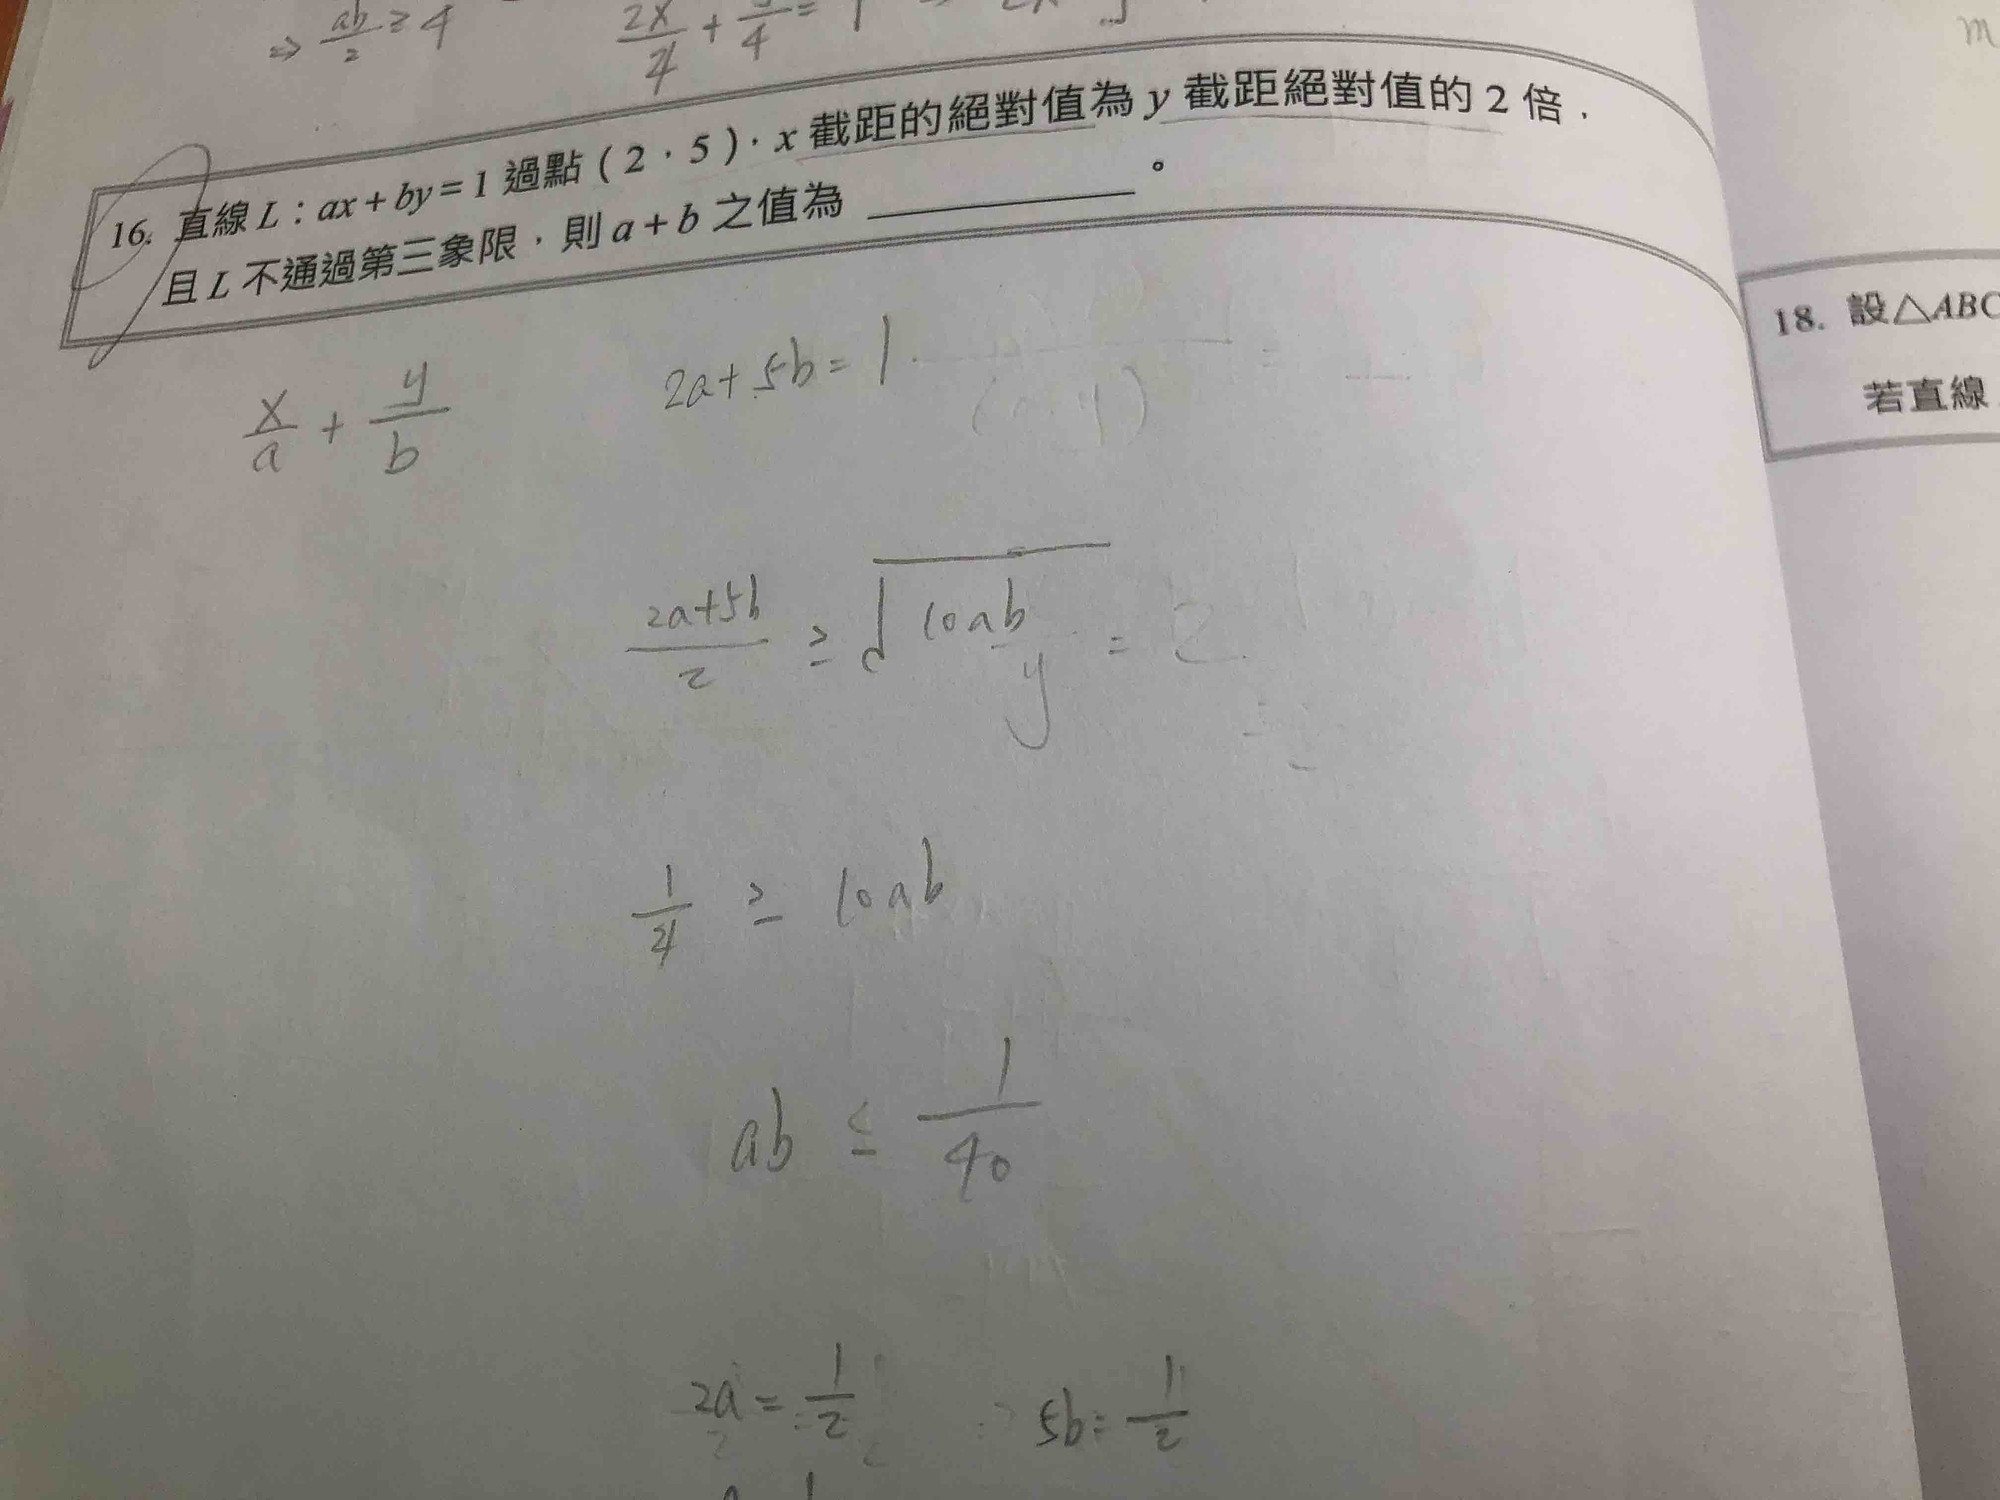 ⇒ ab/2 ≥ 4
2x/4 + /4 = 1
m
16. 直線 L：ax + by = 1 過點（2，5），x 截距的絕對值為 y 截距絕對值的 2 倍，
且 L 不通過第三象限，則 a + b 之值為 ＿＿＿＿＿。
x/a + y/b
2a + 5b = 1
(2a+5b)/2 ≥ √10ab = 2
y
1/4 ≥ 10ab
ab ≤ 1/40
2a = 1/2
5b = 1/2
18. 設△ABC
若直線